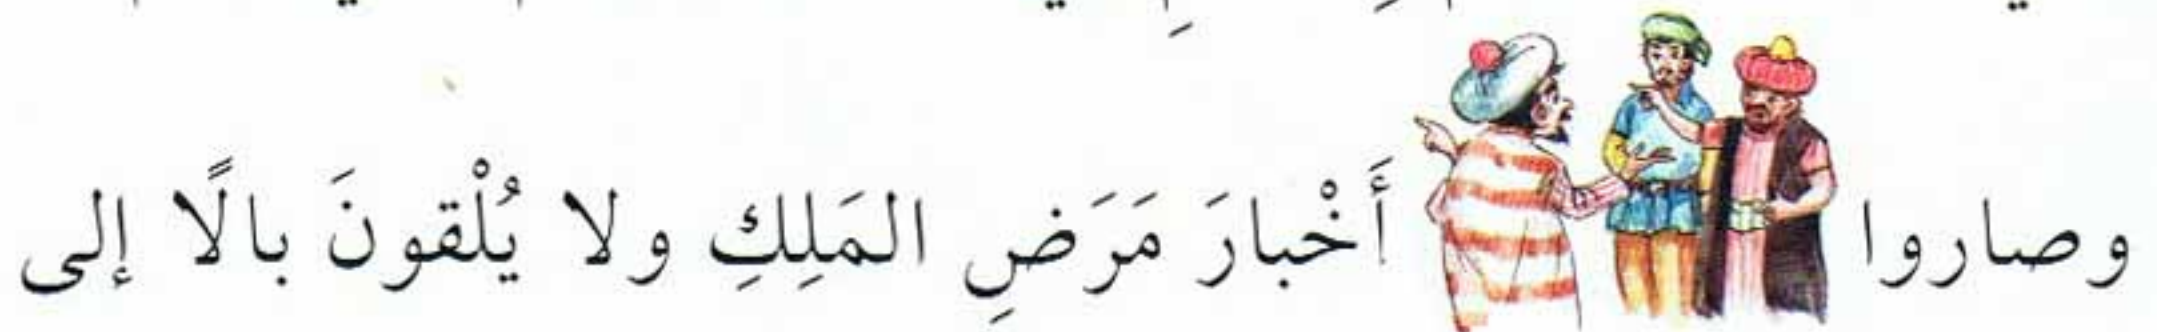 وصاروا أَخْبارَ مَرَضِ المَلِكِ ولا يُلْقونَ بالًا إلى